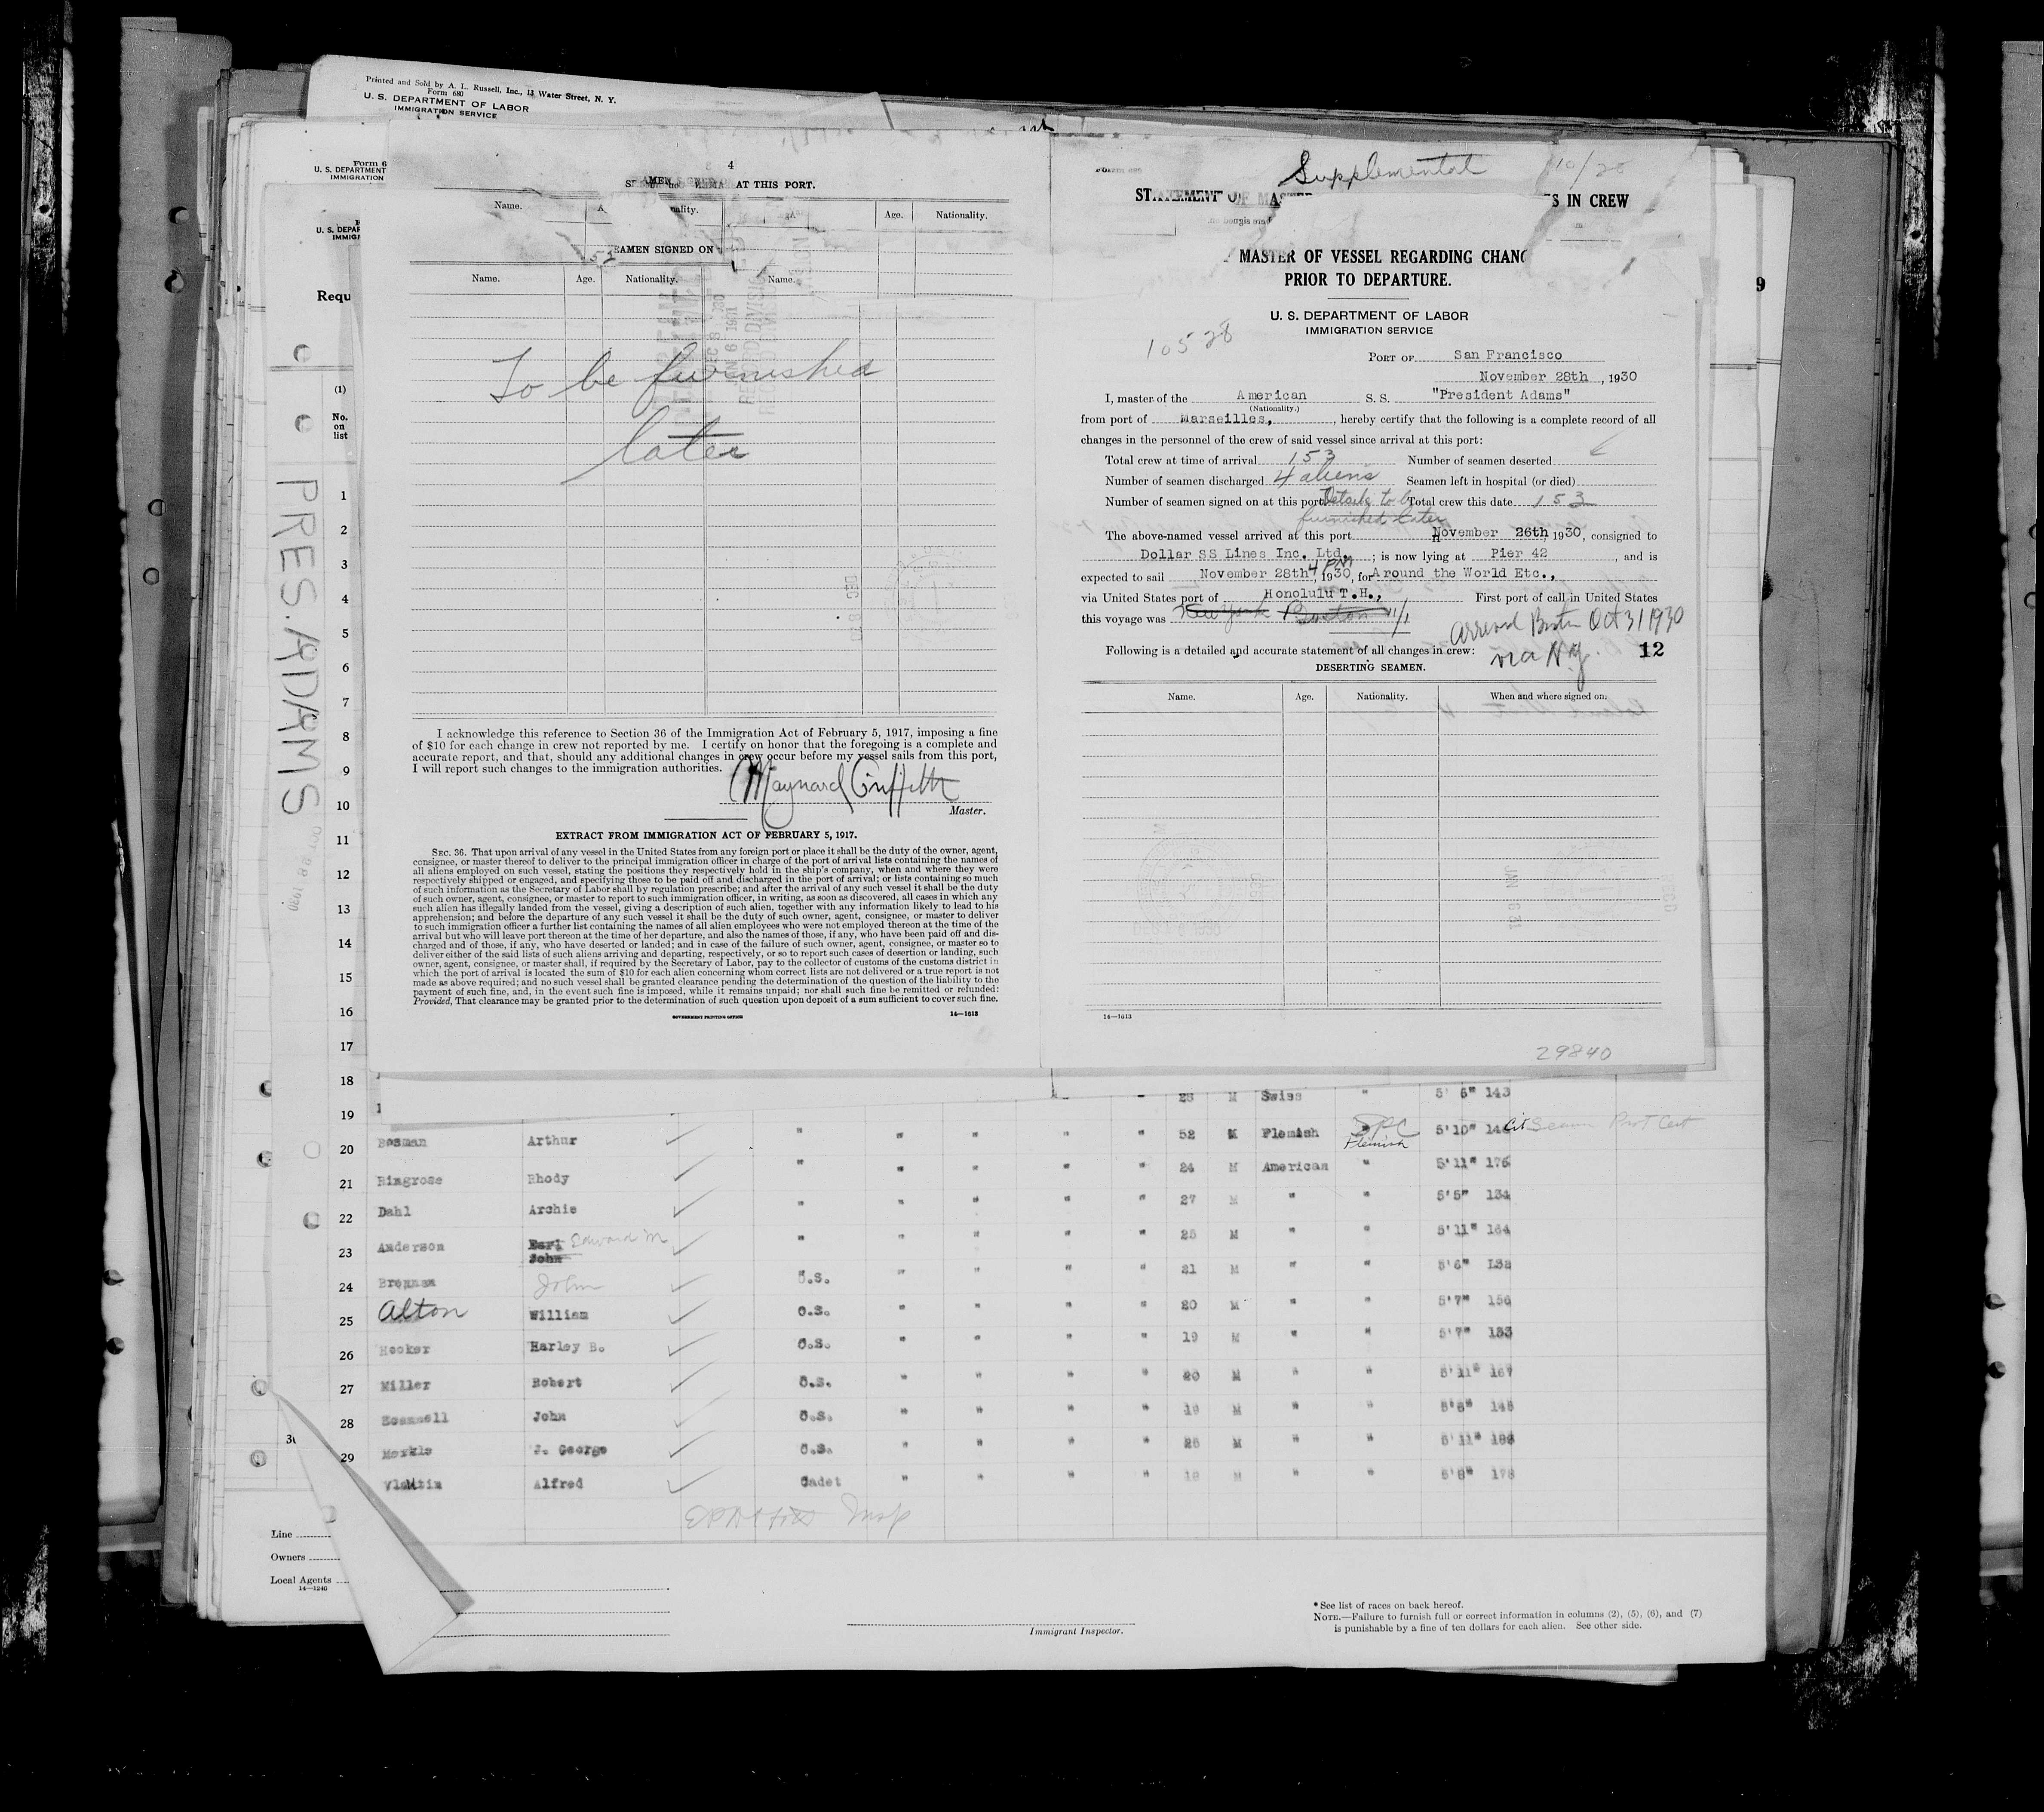 Printed and Sold by A. L. Russell, Inc., 13 Water Street, N. Y.
Form 680
U. S. DEPARTMENT OF LABOR
IMMIGRATION SERVICE
Form 6
U. S. DEPARTMENT
IMMIGRATION
U. S. DEPAR
IMMIGR
Requ
(1)
No.
on
list
PRES. ADAMS
4
AT THIS PORT.
Name.
Age.
Nationality.
SEAMEN SIGNED ON
Name. Age. Nationality. Name.
To be furnished
later
I acknowledge this reference to Section 36 of the Immigration Act of February 5, 1917, imposing a fine
of $10 for each change in crew not reported by me. I certify on honor that the foregoing is a complete and
accurate report, and that, should any additional changes in crew occur before my vessel sails from this port,
I will report such changes to the immigration authorities.
Maynard Griffith
Master.
EXTRACT FROM IMMIGRATION ACT OF FEBRUARY 5, 1917.
SEC. 36. That upon arrival of any vessel in the United States from any foreign port or place it shall be the duty of the owner, agent,
consignee, or master thereof to deliver to the principal immigration officer in charge of the port of arrival lists containing the names of
all aliens employed on such vessel, stating the positions they respectively hold in the ship's company, when and where they were
respectively shipped or engaged, and specifying those to be paid off and discharged in the port of arrival; or lists containing so much
of such information as the Secretary of Labor shall by regulation prescribe; and after the arrival of any such vessel it shall be the duty
of such owner, agent, consignee, or master to report to such immigration officer, in writing, as soon as discovered, all cases in which any
such alien has illegally landed from the vessel, giving a description of such alien, together with any information likely to lead to his
apprehension; and before the departure of any such vessel it shall be the duty of such owner, agent, consignee, or master to deliver
to such immigration officer a further list containing the names of all alien employees who were not employed thereon at the time of the
arrival but who will leave port thereon at the time of her departure, and also the names of those, if any, who have been paid off and dis-
charged and of those, if any, who have deserted or landed; and in case of the failure of such owner, agent, consignee, or master so to
deliver either of the said lists of such aliens arriving and departing, respectively, or so to report such cases of desertion or landing, such
owner, agent, consignee, or master shall, if required by the Secretary of Labor, pay to the collector of customs of the customs district in
which the port of arrival is located the sum of $10 for each alien concerning whom correct lists are not delivered or a true report is not
made as above required; and no such vessel shall be granted clearance pending the determination of the question of the liability to the
payment of such fine, and, in the event such fine is imposed, while it remains unpaid; nor shall such fine be remitted or refunded:
Provided, That clearance may be granted prior to the determination of such question upon deposit of a sum sufficient to cover such fine.
GOVERNMENT PRINTING OFFICE 14—1613
Supplemental 10/28
STATEMENT OF MASTER
S IN CREW
MASTER OF VESSEL REGARDING CHANG
PRIOR TO DEPARTURE.
U. S. DEPARTMENT OF LABOR
IMMIGRATION SERVICE
10528
PORT OF San Francisco
November 28th, 1930
I, master of the American S. S. "President Adams"
(Nationality.)
from port of Marseilles, , hereby certify that the following is a complete record of all
changes in the personnel of the crew of said vessel since arrival at this port:
Total crew at time of arrival 153 Number of seamen deserted
Number of seamen discharged 4 aliens Seamen left in hospital (or died)
Number of seamen signed on at this port Details to be Total crew this date 153
furnished later
The above-named vessel arrived at this port November 26th, 1930, consigned to
Dollar SS Lines Inc. Ltd. ; is now lying at Pier 42 , and is
4 PM
expected to sail November 28th 1930, for Around the World Etc.,
via United States port of Honolulu T.H., First port of call in United States
this voyage was New York Boston 11/1 arrived Boston Oct 31 1930
via N.Y.
Following is a detailed and accurate statement of all changes in crew: 12
DESERTING SEAMEN.
Name. Age. Nationality. When and where signed on.
JAN 6 31
14—1613
29840
9
1
2
3
4
5
6
7
8
9
10
11
12
13
14
15
16
17
18
19
M Swiss " 5' 6" 143
20 Bosman Arthur " " " " " 52 M Flemish Flemish 5'10"
21 Ringrose Rhody " " " " " 24 M American " 5'11" 175
22 Dahl Archie " " " " " 27 M " " 5'5" 134
23 Anderson Earl John Edward M " " " " " 25 M " " 5'11" 164
24 Brennan John O.S. " " " " 21 M " " 5'6" 138
25 Alton William O.S. " " " " 20 M " " 5'7" 156
26 Hooker Harley B. O.S. " " " " 19 M " " 5'7" 133
27 Miller Robert O.S. " " " " 20 M " " 5'11" 167
28 John O.S. " " " " 19 M " " 5'6" 145
29 Merkle J. George O.S. " " " " 25 M " " 5'11"
Alfred Cadet " " " " 18 M " " 5'8" 178
Line
Owners
Local Agents
14—1240
Immigrant Inspector.
* See list of races on back hereof.
NOTE.—Failure to furnish full or correct information in columns (2), (5), (6), and (7)
is punishable by a fine of ten dollars for each alien. See other side.